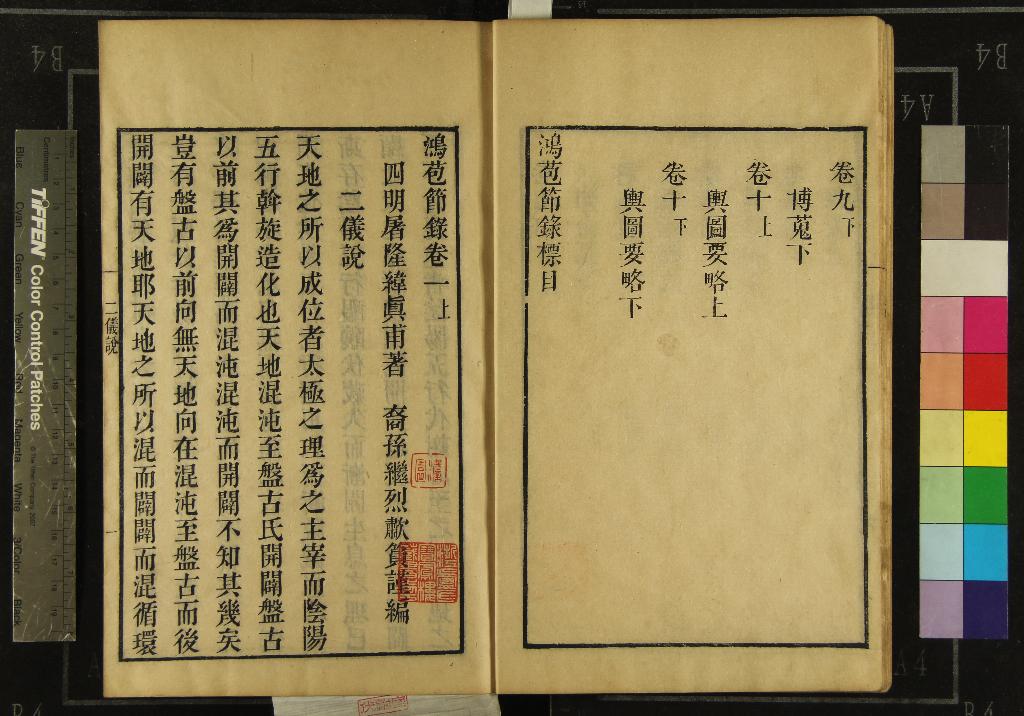 卷九下
博蒐下
卷十上
輿圖要略上
卷十下
輿圖要略下
鴻苞節錄標目
鴻苞節錄卷一上
四明屠隆緯眞甫著 裔孫繼烈歗篔謹編
二儀說
天地之所以成位者太極之理爲之主宰而陰陽
五行斡旋造化也天地混沌至盤古氏開闢盤古
以前其爲開闢而混沌混沌而開闢不知其幾矣
豈有盤古以前向無天地向在混沌至盤古而後
開闢有天地耶天地之所以混而闢闢而混循環
二儀說
TIFFEN Color Control Patches
Blue
Cyan
Green
Yellow
Red
Magenta
White
3/Color
Black
Centimetres
Inches
B4
B4
A4
A4
B4
B4